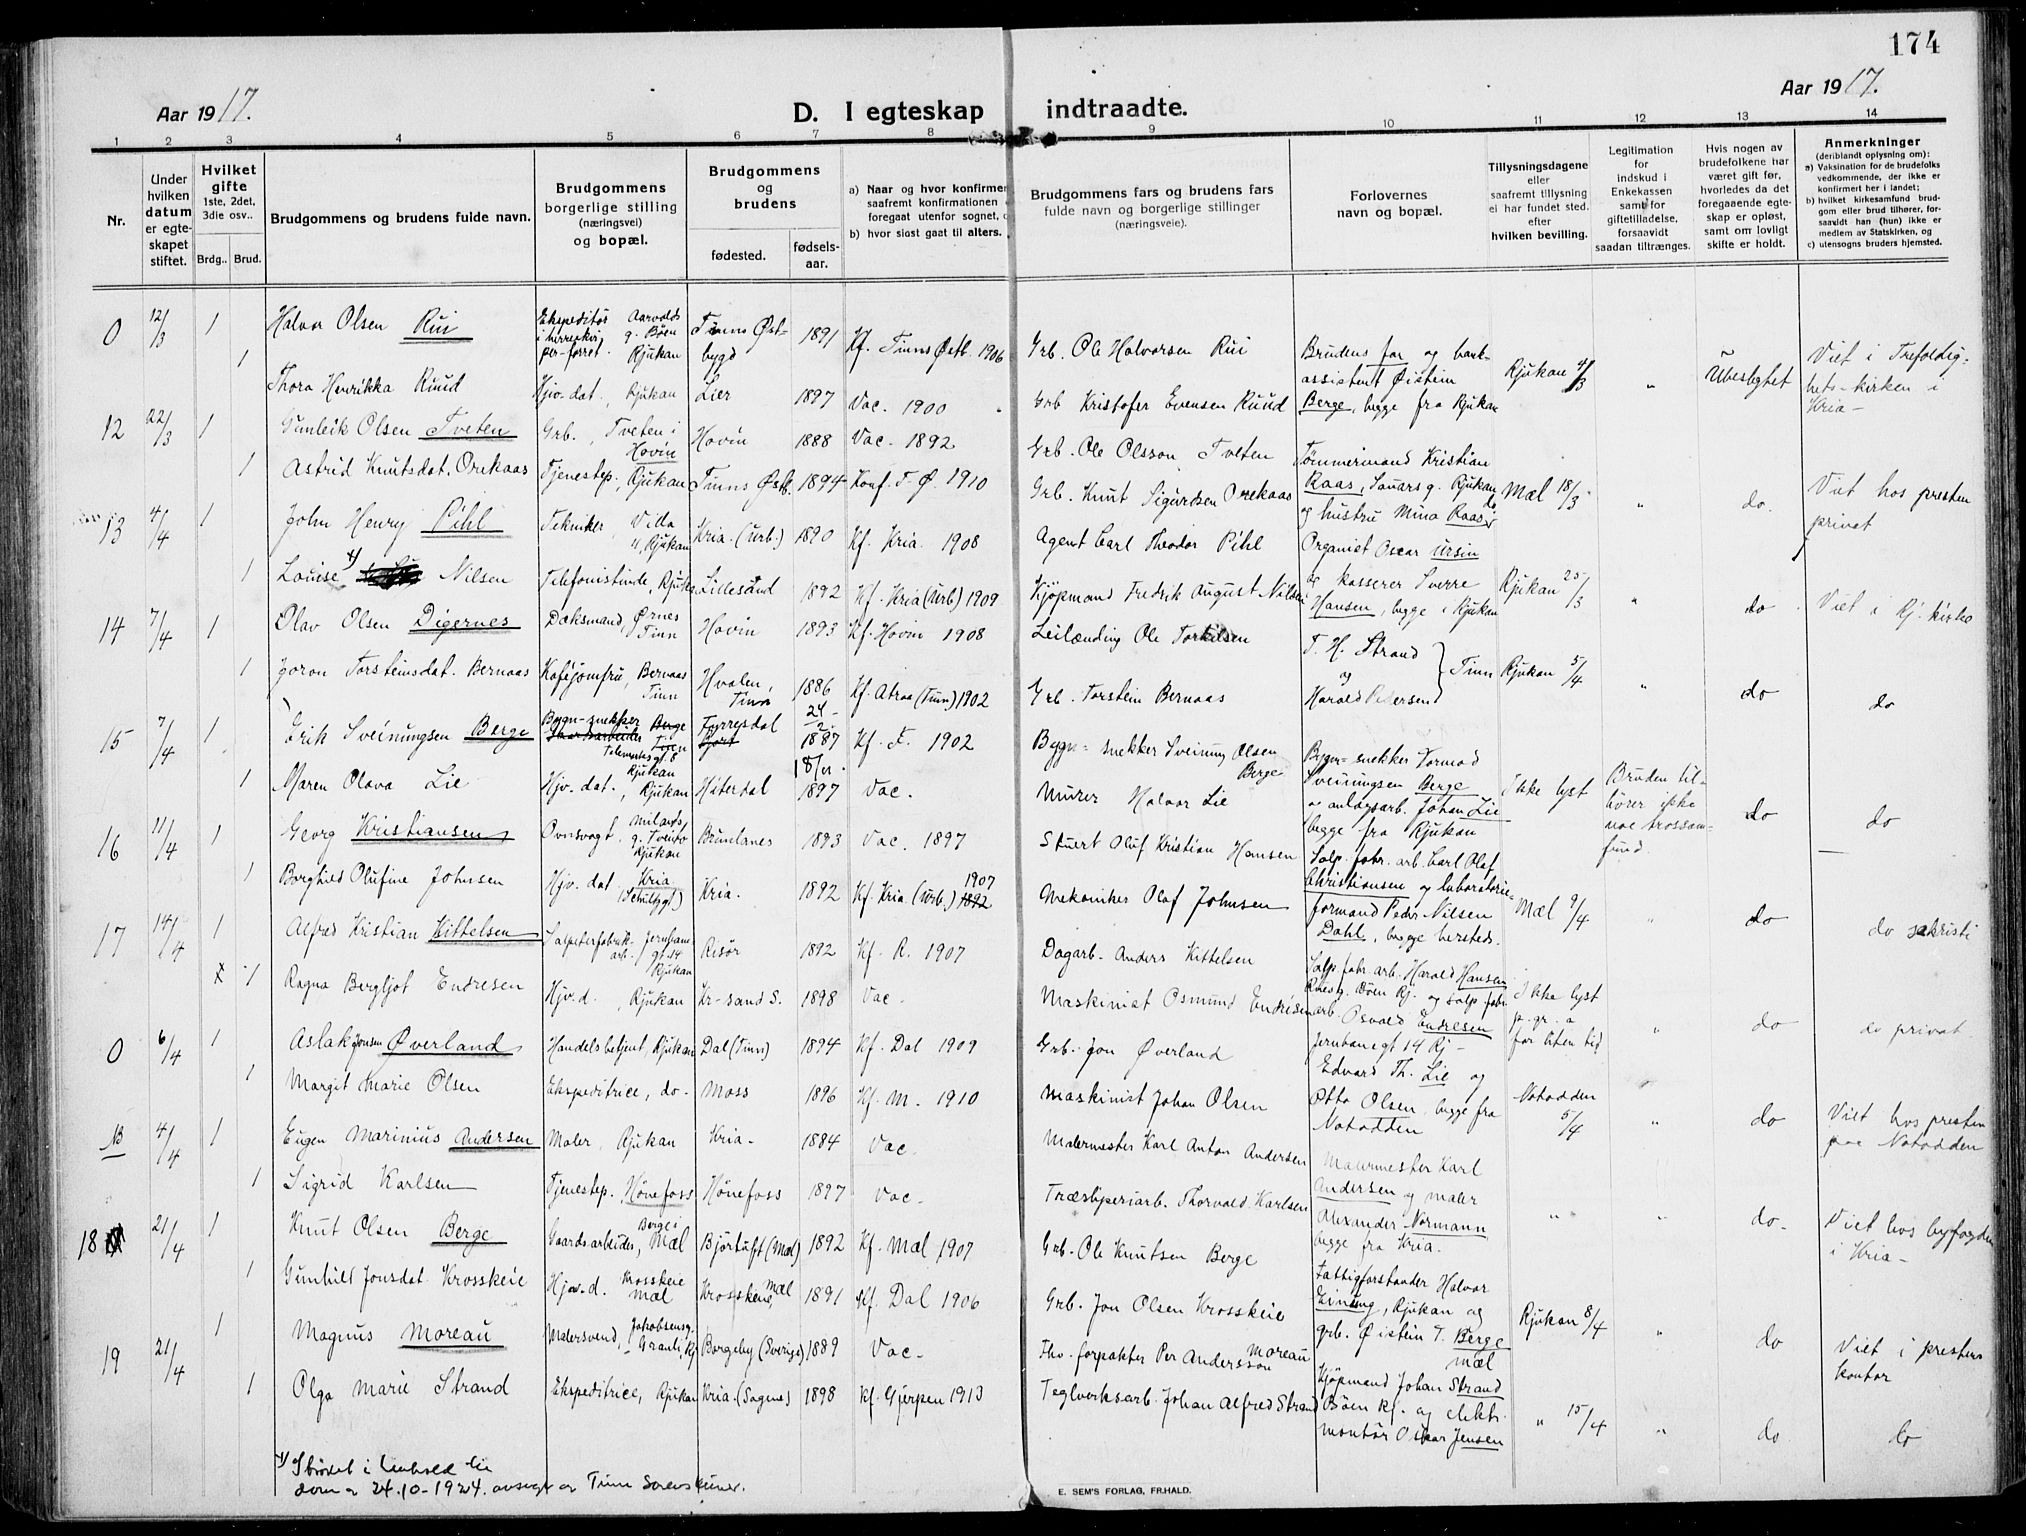 174
Aar 1917.
D. I egteskap indtraadte.
Aar 1917.
1 2 3 4 5 6 7 8 9 10 11 12 13 14
Nr.
Under hvilken datum er egteskapet stiftet.
Hvilket gifte 1ste, 2det, 3die osv..
Brdg.. Brud.
Brudgommens og brudens fulde navn.
Brudgommens borgerlige stilling (næringsvei) og bopæl.
Brudgommens og brudens
fødested.
fødsels-aar.
a) Naar og hvor konfirmer
saafremt konfirmationen
foregaat utenfor sognet,
b) hvor sidst gaat til alters.
Brudgommens fars og brudens fars
fulde navn og borgerlige stillinger
(næringsveie).
Forlovernes
navn og bopæl.
Tillysningsdagene
eller
saafremt tillysning
ei har fundet sted.
efter
hvilken bevilling.
Legitimation
for
indskud i
Enkekassen
samt for
giftetilladelse,
forsaavidt
saadan tiltrænges.
Hvis nogen av
brudefolkene har
været gift før,
hvorledes da det
foregaaende egte-
skap er opløst,
samt om lovligt
skifte er holdt.
Anmerkninger
(deriblandt oplysning om):
a) Vaksination for de brudefolks
vedkommende, der ikke er
konfirmert her i landet;
b) hvilket kirkesamfund brud-
gom eller brud tilhører, for-
saavidt han (hun) ikke er
medlem av Statskirken, og
c) utensogns bruders hjemsted.
0 12/3 1 Halvor Olsen Rui Ekspeditør i herreekvi-per-forret. Aarvolds g. Bøen Rjukan Tinns Østbygd 1891 Kf. Tinns Østb. 1906 Grb. Ole Halvorsen Rui Brudens far og bankassistent Øistein Berge, begge fra Rjukan Rjukan 4/3 " Ubeslegtet Viet i Trefoldighets-kirken i Kria-
1 Thora Henrikka Ruud Hjv. dat., Rjukan Lier 1897 Vac. 1900 Grb Kristofer Evensen Ruud
12 22/3 1 Gunleik Olsen Tveten Grb., Tveten i Hovin Hovin 1888 Vac. 1892 Grb. Ole Olsson Tveten Tømmermand Kristian Raas, Sauarsg. Rjukan og hustru Mina Raas do Mæl 18/3 " do. Viet hos presten privat
1 Astrid Knutsdat. Ornekaas Tjenestep., Rjukan Tinns Østb. 1894 Konf. T. Ø. 1910 Grb. Knut Sigurdsen Ornekaas
13 4/4 1 John Henry Pihl Tekniker, Villa 11, Rjukan Kria. (Urb.) 1890 Kf. Kria 1908 Agent Carl Theodor Pihl Organist Oscar Ursin og kasserer Sverre Hansen, begge i Rjukan Rjukan 25/3 " do Viet i Rj. kirke
1 Louise 1) Nilsen Telefonistinde, Rjukan Lillesand 1892 Kf. Kria (Urb) 1909 Kjøpmand Fredrik August Nilsen
14 7/4 1 Olav Olsen Digernes Dæksmand, Ørnes Tinn Hovin 1893 Kf. Hovin 1908 Leilænding Ole Torkilsen T. H. Strand og Harald Pedersen } Tinn Rjukan 5/4 " do do
1 Joron Torsteinsdat. Bernaas Kaféjomfru, Bernaas Tinn Hvalen, Tinn 1886 Kf. Atraa (Tinn) 1902 Grb. Torstein Bernaas
15 7/4 1 Erik Sveinungsen Berge Bygn-snekker Rjukan Fyrresdal 24/2 1887 Kf. F. 1902 Bygn-snekker Sveinung Olsen Berge Bygn-snekker Tormod Sveinungsen Berge og anlægsarb. Johan Lie begge fra Rjukan Ikke lyst Bruden tilhører ikke noe trossamfund. do do
1 Maren Olava Lie Hjv. dat., Rjukan Hiterdal 18/11 1897 Vac. Murer Halvor Lie
16 11/4 1 Georg Kristiansen Ovnsvagt, Rjukan Brunlanes 1893 Vac. 1897 Stuert Oluf Kristian Hansen Salp. fabr. arb. Carl Olaf Christiansen og laboratorieformand Peder Nilsen Dahl, begge hersteds. Mæl 9/4 " do do sakristi
1 Borghild Olufine Johnsen Hjv. dat, Kria Kria. 1892 Kf. Kria (Urb.) 1907 1892 Mekaniker Olaf Johnsen
17 14/4 1 Alfred Kristian Kittelsen Salpeterfabrik-arb. Jernban gt. 14 Rjukan Risør 1892 Kf. R. 1907 Dagarb. Anders Kittelsen Salp. fabr. arb. Harald Hansen Bøen Rj. og salp. fabr. arb. Osvald Endresen Jernbanegt 14 Rj- Ikke lyst p. gr. a for liten tid " do do privat
1 Ragna Bergljot Endresen Hjv. d., Rjukan Kr-sand S. 1898 Vac. Maskinist Osmund Endresen
0 6/4 1 Aslak Jonsen Øverland Handelsbetjent, Rjukan Dal (Tinn) 1894 Kf. Dal 1909 Grb. Jon Øverland Edvard Th. Lie og Otto Olsen, begge fra Notodden Notodden 5/4 " do Viet hos presten paa Notodden
1 Margit Marie Olsen Ekspeditrice, do. Moss 1896 Kf. M. 1910 Maskinist Johan Olsen
N 4/4 1 Eugen Marinius Andersen Maler, Rjukan Kria- 1884 Vac. Malermester Karl Anton Andersen Malermester Karl Andersen og maler Alexander Normann, begge fra Kria. " " do. Viet hos byfogden i Kria-
1 Sigrid Karlsen Tjenestep. Hønefoss Hønefoss 1897 Vac. Træsliperiarb. Thorvald Karlsen
18 21/4 1 Knut Olsen Berge Gaardsarbeider, Berge i Mæl Bjørtuft (Mæl) 1892 Kf. Mæl 1907 Grb. Ole Knutsen Berge Fattigforstander Halvor Einung, Rjukan og grb. Øistein T. Berge Mæl Rjukan 8/4 " do Viet i prestens kontor
1 Gunhild Jonsdat. Krosskeie Hjv. d. Krosskeie Mæl Krosskeie, Mæl 1891 Kf. Dal 1906 Grb. Jon Olsen Krosskeie
19 21/4 1 Magnus Moreau Malersvend, Jakobsensg. Granli, Rj Borgeby (Sverige) 1889 Vac. Fhv. forpakter Per Andersson Moreau Kjøpmand Johan Strand Bøen Rj. og elektr. montør Oskar Jensen " 15/4 " do. do
1 Olga Marie Strand Ekspeditrice, Rjukan Kria. (Sagene) 1898 Kf. Gjerpen 1913 Teglverksarb. Johan Alfred Strand
1) Strøket i henhold til
dom a 24.10-1924. avsagt av Tinn Sorenskriver.
E. SEM'S FORLAG, FR.HALD.